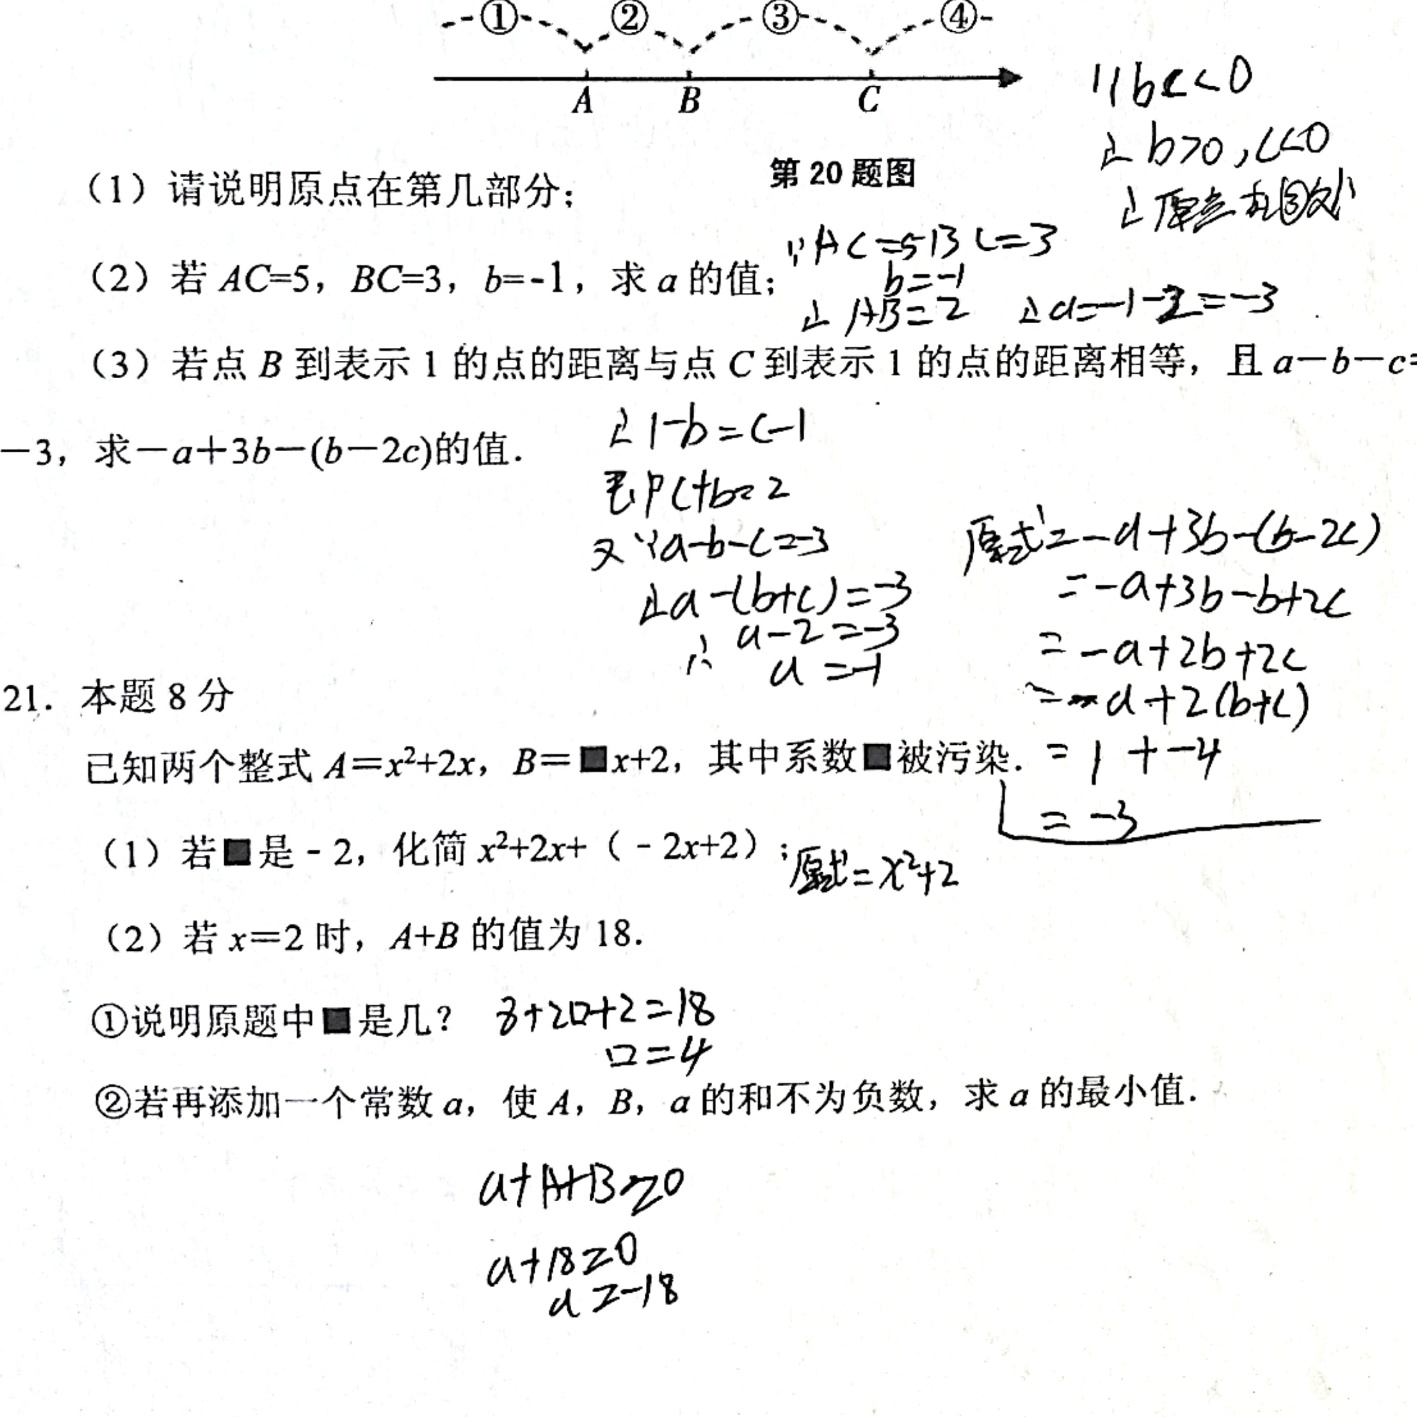 ① ② ③ ④
A B C
∵bc<0
∴b>0,c<0
第20题图
(1)请说明原点在第几部分;
∴原点在③部分
∵AC=5 BC=3
(2)若AC=5,BC=3,b=-1,求a的值;
b=-1
∴AB=2 ∴a=-1-2=-3
(3)若点B到表示1的点的距离与点C到表示1的点的距离相等,且a-b-c=
-3,求-a+3b-(b-2c)的值.
∴1-b=c-1
即c+b=2
又∵a-b-c=-3
∴a-(b+c)=-3
∴a-2=-3
a=-1
原式=-a+3b-(b-2c)
=-a+3b-b+2c
=-a+2b+2c
=-a+2(b+c)
=1+-4
=-3
21.本题8分
已知两个整式A=x²+2x,B=■x+2,其中系数■被污染.
(1)若■是-2,化简x²+2x+(-2x+2);
原式=x²+2
(2)若x=2时,A+B的值为18.
①说明原题中■是几?
8+2□+2=18
□=4
②若再添加一个常数a,使A,B,a的和不为负数,求a的最小值.
a+A+B≥0
a+18≥0
a≥-18